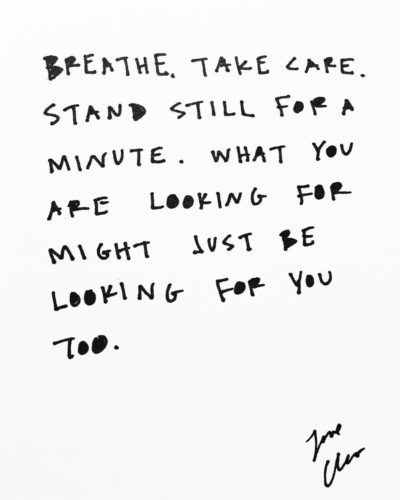 BREATHE. TAKE CARE.
STAND STILL FOR A
MINUTE. WHAT YOU
ARE LOOKING FOR
MIGHT JUST BE
LOOKING FOR YOU
TOO.
love
Cleo